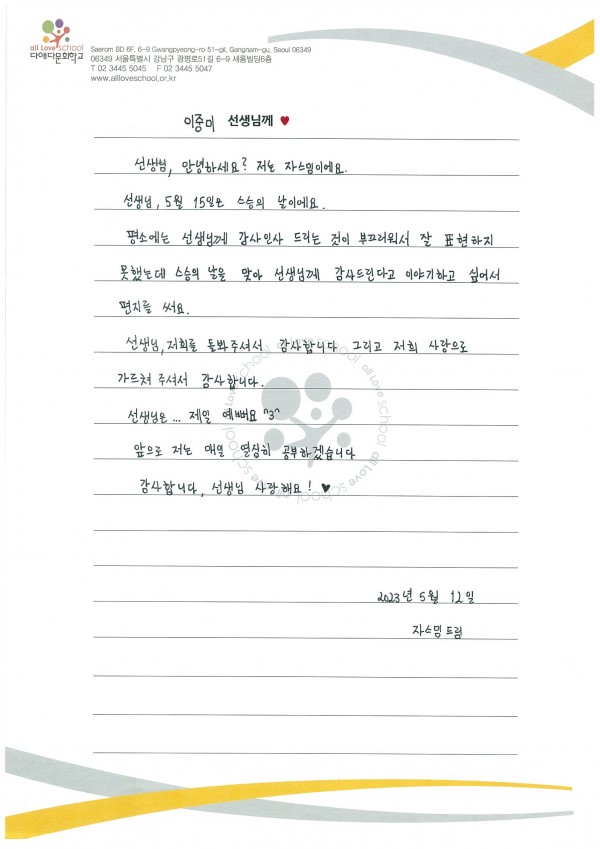 all Love school
다애다문화학교
Saerom BD 6F, 6-9 Gwangpyeong-ro 51-gil, Gangnam-gu, Seoul 06349
06349 서울특별시 강남구 광평로51길 6-9 새롬빌딩6층
T 02 3445 5045 F 02 3445 5047
www.allloveschool.or.kr
이중미 선생님께 ♥
선생님, 안녕하세요? 저는 자스밍이에요.
선생님, 5월 15일은 스승의 날이에요.
평소에는 선생님께 감사인사 드리는 것이 부끄러워서 잘 표현하지
못했는데 스승의 날을 맞아 선생님께 감사드린다고 이야기하고 싶어서
편지를 써요.
선생님, 저희를 돌봐주셔서 감사합니다 그리고 저희 사랑으로
가르쳐 주셔서 감사합니다.
선생님은 ... 제일 예뻐요 ^3^
앞으로 저는 매일 열심히 공부하겠습니다
감사합니다, 선생님 사랑해요! ♥
2023년 5월 12일
자스밍 드림
all Love school all Love school all Love school